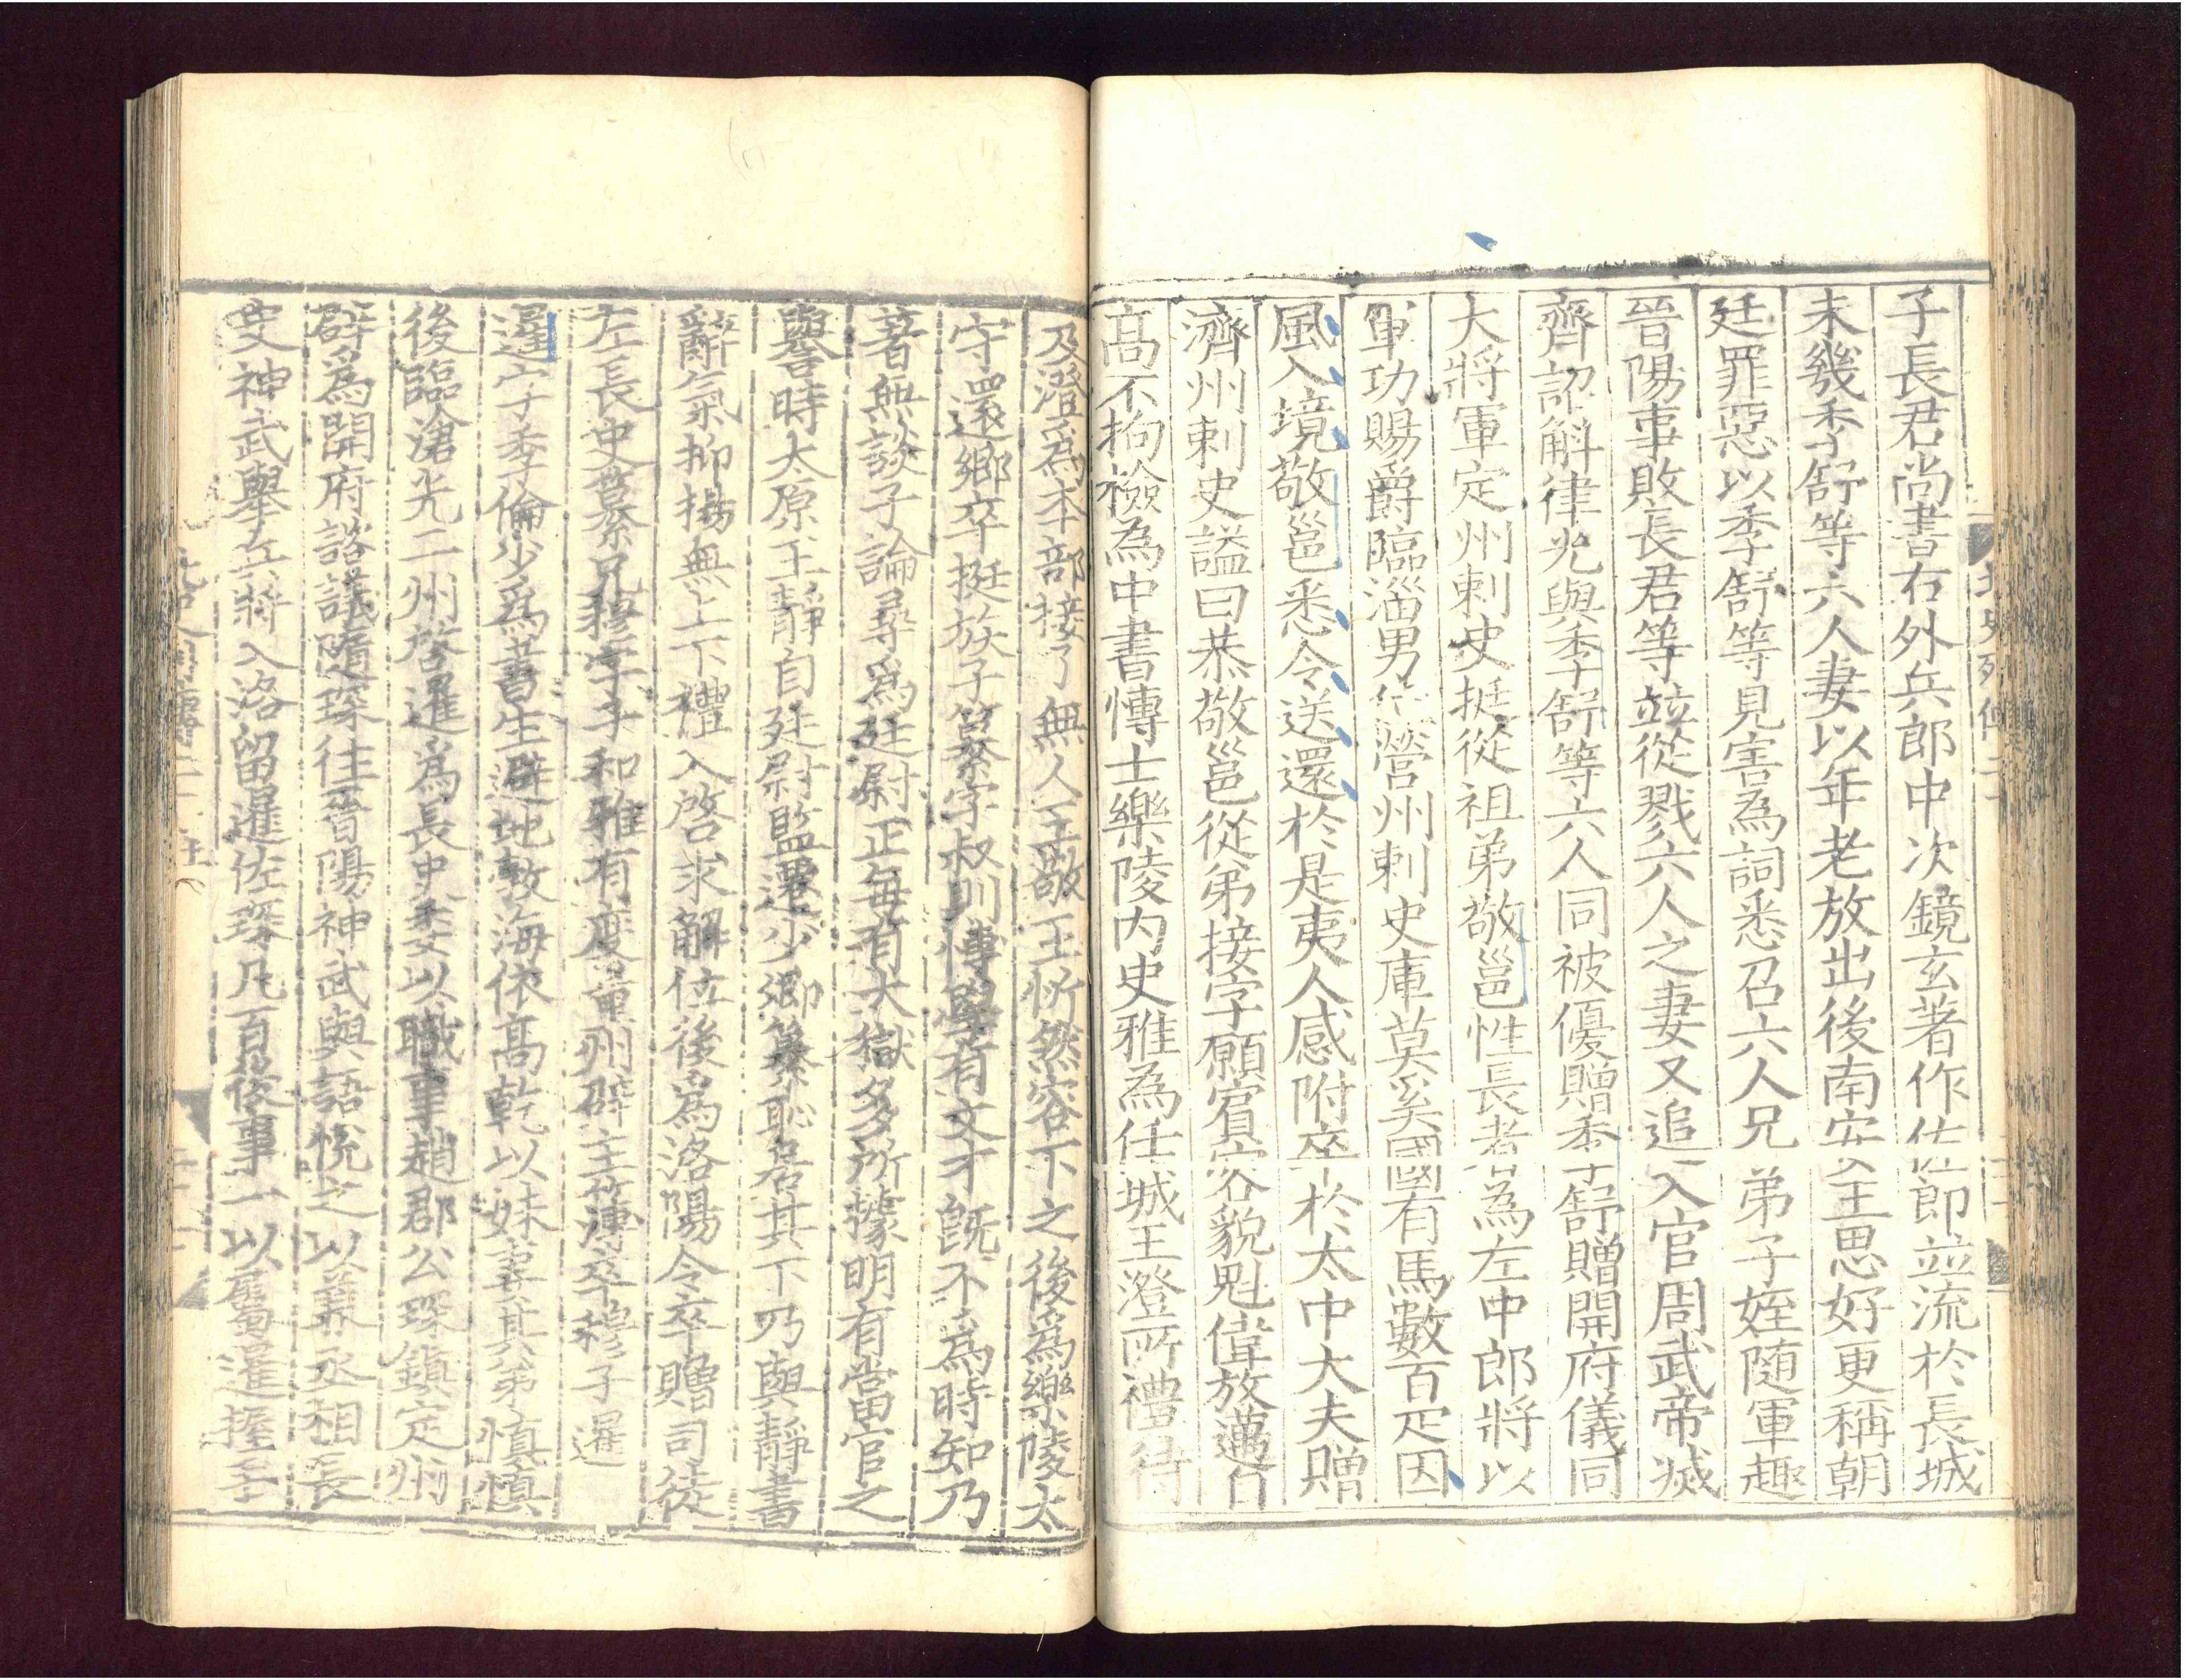 子長君尚書右外兵郎中次鏡玄著作佐郎並流於長城
未幾季舒等六人妻以年老放出後南安王思好更稱朝
廷罪惡以季舒等見害為詞悉召六人兄弟子姪随軍趣
晉陽事敗長君等並從戮六人之妻又追入官周武帝滅
齊詔斛律光與季舒等六人同被優贈季舒贈開府儀同
大將軍定州刺史挺從祖弟敬邕性長者為左中郎將以
軍功賜爵臨淄男 營州刺史庫莫奚國有馬數百疋因
風入境敬邕悉令送還於是夷人感附卒於太中大夫贈
濟州刺史謚曰恭敬邕從弟接字願賓容貌魁偉放邁自
高不拘檢為中書博士樂陵内史雅為任城王澄所禮待
及澄爲本部接了無人王敬王忻然容下之後爲樂陵太
守還鄉卒挺族子纂字叔則博學有文才既不爲時知乃
著無談子論尋爲廷尉正每有大獄多所據明有當官之
譽時太原王靜自廷尉監遷少卿纂恥居其下乃與靜書
辭氣抑揚無上下禮入啓求解位後爲洛陽令卒贈司徒
左長史纂兄穆字子和雅有度量州辟主簿卒穆子暹
暹字季倫少爲書生避地敦海依高乾以妹妻其弟慎慎
後臨滄光二州啓暹爲長史委以職事趙郡公琛鎮定州
辟爲開府諮議隨琛往晉陽神武與語悅之以兼丞相長
史神武舉兵將入洛留暹佐琛凡百後事一以屬暹握手